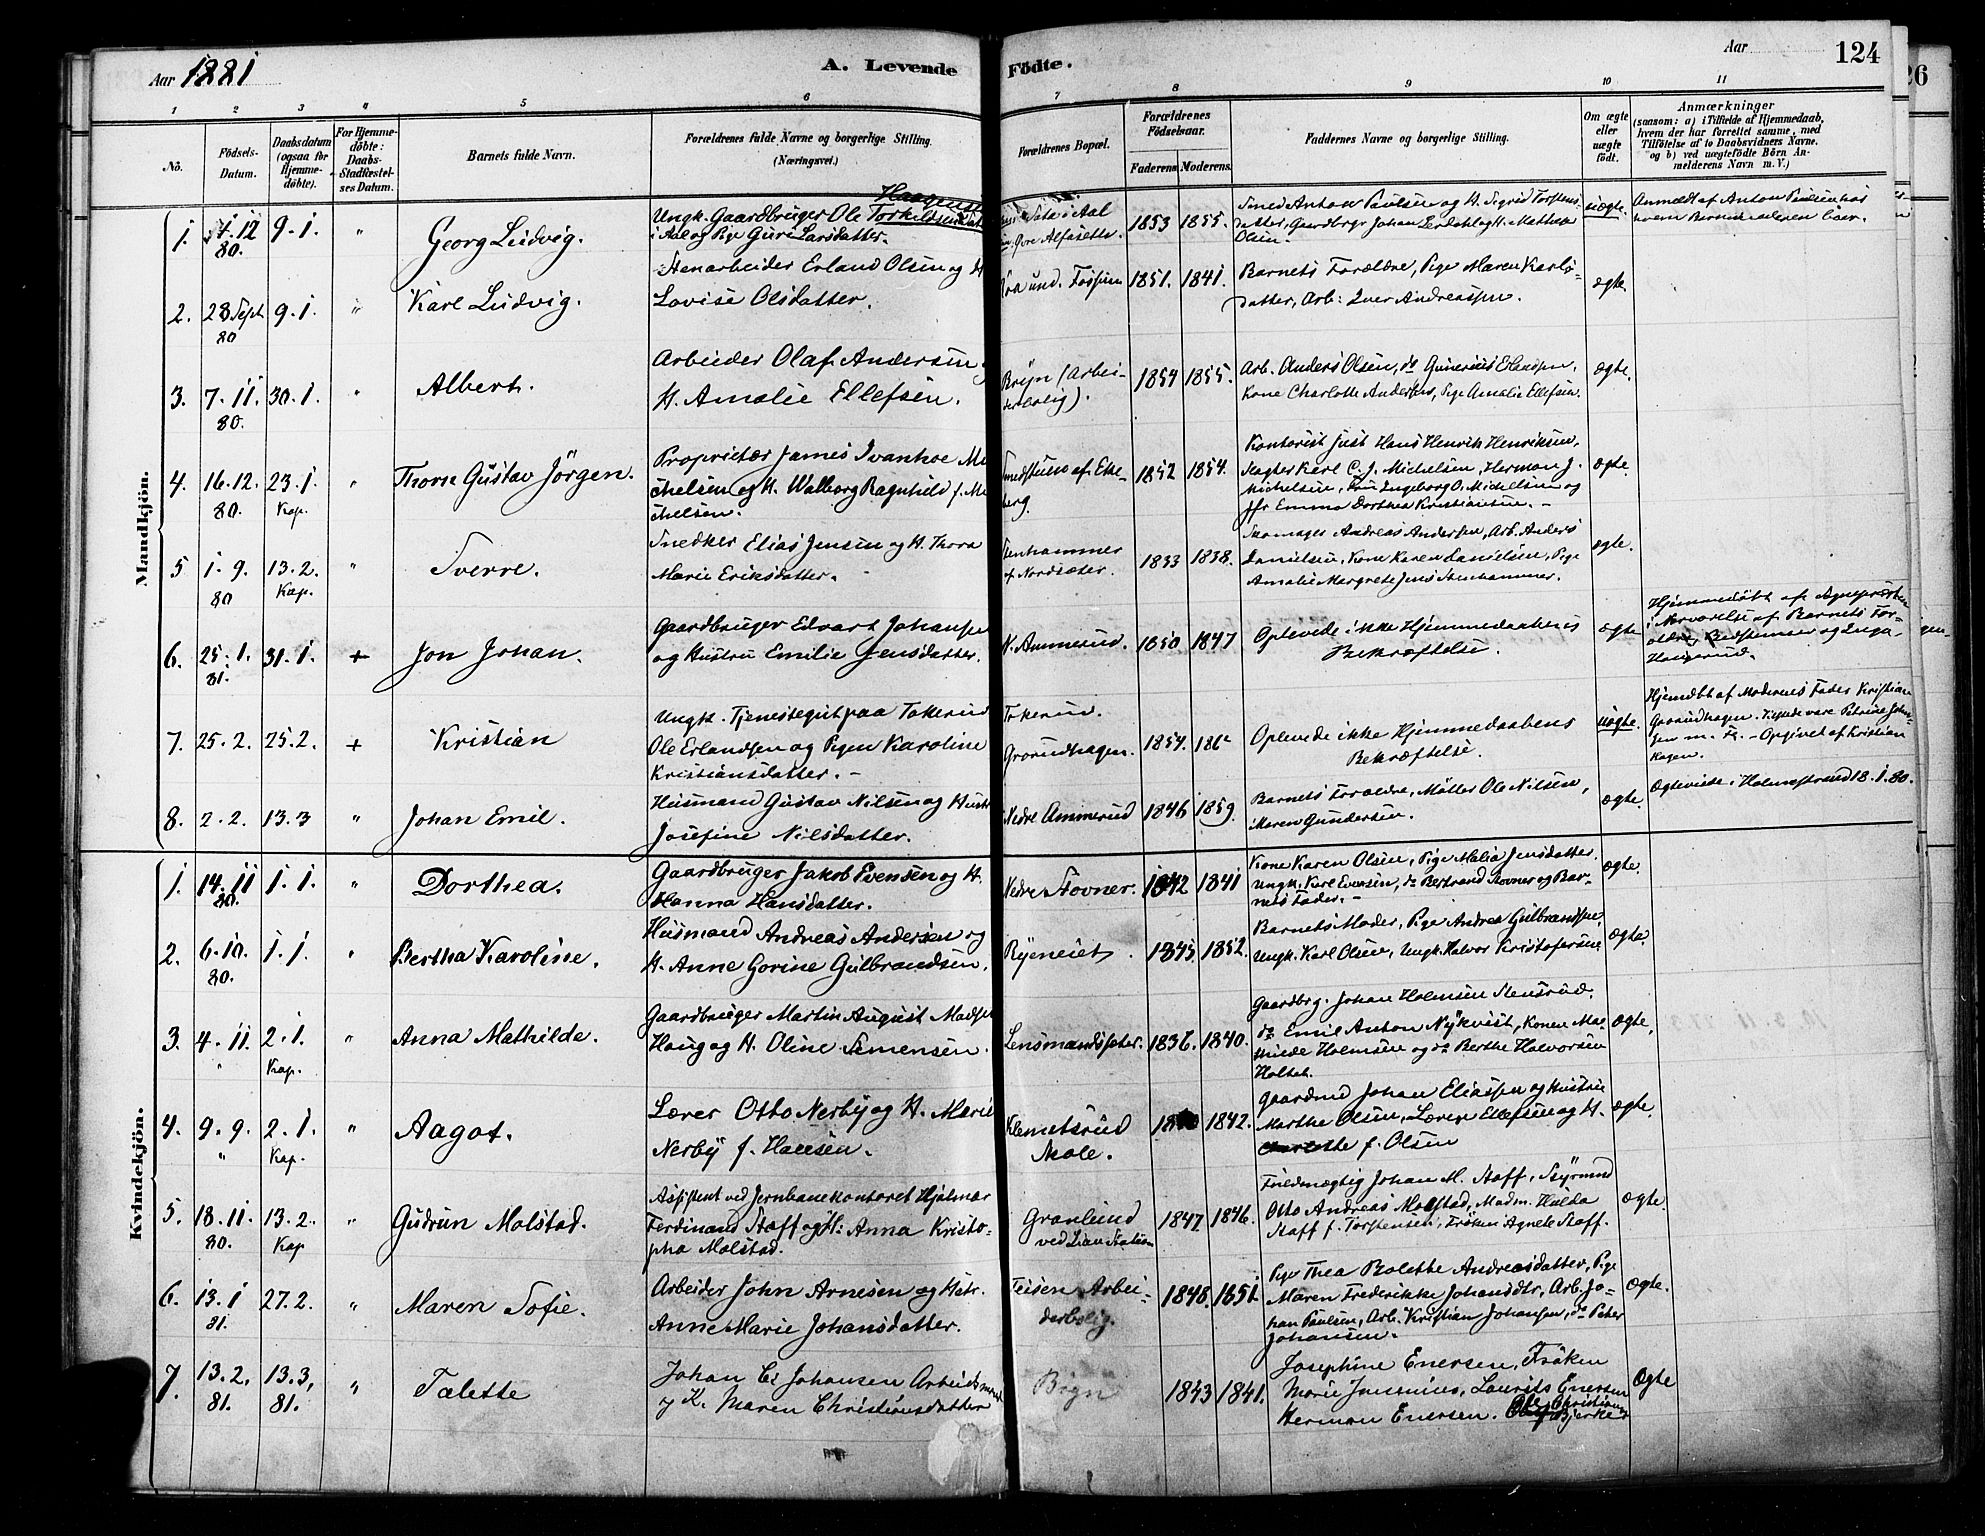 Aar 1881
A. Levende Fødte.
Aar
124
1 2 3 " 5 6 7 8 9 10 11
No.
Fødsels-Datum.
Daabsdatum (ogsaa for Hjemmedøbte).
For Hjemmedøbte: Daabs-Stadfæstelses Datum.
Barnets fulde Navn.
Forældrenes fulde Navne og borgerlige Stilling.
(Næringsvei.)
Forældrenes Bopæl.
Forældrenes Fødselsaar.
Faderens Moderens.
Faddernes Navne og borgerlige Stilling.
Om ægte eller uægte født.
Anmærkninger
(saasom: a) i Tilfælde af Hjemmedaab,
hvem der har forrettet samme, med
Tilføielse af to Daabsvidners Navne.
og b) ved uægtefødte Børn Anmelderens Navn m. V.)
Mandkjön.
1. 12 80. 9.1. " Georg Ludvig. Ungk. Gaardbruger Ole Torkildsen i Aal og Pige Guri Larsdatter. 1853 1855. Smed Anton Paulsen og H. Sigrid Torstensdatter, Gaardbrgr Johan Lerdahl og H. Mathea Olsen. uægte. Anmeldt af Anton Paulsen hos hvem Barnemoderen boer.
2. 28 Sept 80 9.1. " Karl Ludvig. Stenarbeider Erland Olsen og H. Lovise Olsdatter. 1851. 1841. Barnets Forældre, Pige Maren Karlsdatter, Arb: Iver Andreassen. ægte.
3. 7.11. 80. 30.1. " Albert. Arbeider Olaf Andersen H. Amalie Ellefsen. Bryn (Arbeiderbolig). 1854 1855. Arb. Anders Olsen, do Gunerius Erlandsen, Kone Charlotte Andersen, Pige Amalie Ellefsen. ægte.
4. 16.12. 80 23.1. Kap. " Thorn Gustav Jörgen. Proprietær James Ivanhoe Michelsen og H. Walborg Ragnhild f. Michelsen. af Ekeberg. 1852 1854. Kontorist Just Hans Henrik Henriksen, Slagter Karl C. J. Michelsen, Herman J. Michelsen, Fru Ingeborg O. Michelsen og jfr Emma Dorthea Kristiansen. ægte.
5 1.9. 80 13.2. Kap. " Sverre. Snedker Elias Jensen og H. Thora Marie Eriksdatter. Stenhammer af Nordsæter. 1833 1838. Skomager Andreas Andersen, Arb. Anders Danielsen, Kone Karen Danielsen, Pige Amalie Margrete Jens Stenhammer. ægte.
6. 25.1. 81. 31.1. + Jon Johan. Gaardbruger Edvart Johansen og Hustru Emilie Jensdatter. N. Ammerud. 1850 1847 Oplevede ikke Hjemmedaabens Bekræftelse. ægte Hjemmedøbt af Sognepræsten i Nærværelse af Barnets Forældre, Bedstemoder og Inga Haugerud.
7. 25.2. 25.2. + Kristian Ungk. Tjenestegut paa Tokerud Ole Erlandsen og Pigen Karoline Kristiansdatter. Tokerud. Grorudhagen. 1854. Oplevede ikke Hjemmedaabens Bekræftelse. uægte. Hjemdbt af Moderens Fader Kristian Grorudhagen. Opgivet af Kristian Hagen.
8. 2.2. 13.3 " Johan Emil. Husmand Gustav Nilsen og Hustr Josefine Nilsdatter. Nedre Ammerud 1846 1859. Barnets Forældre, Møller Ole Nilsen, Maren Gundersen. ægte. Ægteviede i Holmestrand 18.1.80.
Kvindekjön.
1. 14.11 80. 1.1. " Dorthea. Gaardbruger Jakob Evensen og H. Hanna Hansdatter. Nedre Stovner. 1842 1841 Kone Karen Olsen, Pige Malia Jensdatter, Ungk. Karl Evensen, do Bertrand Stovner og Barnets Fader. ægte.
2. 6.10. 80. 1.1. " Bertha Karoline. Husmand Andreas Andersen og H. Anne Gorine Gulbrandsen. Ryeneiet. 1845. 1852. Barnets Moder, Pige Andrea Gulbrandsen, Ungk. Karl Olsen, Ungk. Halvor Kristofersen. ægte.
3. 4.11. " 2.1. Kap. " Anna Mathilde. Gaardbruger Martin August Madsen Haug og H. Oline Simensen. Lensmandssæter. 1836. 1840. Gaardbrg. Johan Holmsen Stensrud. do Emil Anton Nykvist, Konen Mathilde Holmsen og do Berthe Halvorsen Holtet. ægte.
4. 9.9. " 2.1. Kap. " Aagot. Lærer Otto Nerby og H. Marie Nerby f. Hansen. Klemetsrud Skole. 1842. Gaardmd Johan Eliassen og Hustru Marthe Olsen, Lærer Ellefsen og H. Charlotte f. Olsen ægte.
5. 18.11. 80. 13.2. Kap " Gudrun Molstad. Assistent ved Jernbanekontoret Hjalmar Ferdinand Staff og H: Anna Kristopha Molstad. Granlund ved Lian Station 1847. 1846. Fuldmægtig Johan M. Staff, Styrmd Otto Andreas Molstad, Madm. Hulda Staff f. Torstensen, Frøken Agnete Staff. ægte
6. 13.1 81. 27.2. " Maren Sofie. Arbeider John Arnesen og Hstr. Anne Marie Johansdatter. Teisen Arbeiderbolig. 1848. 1851. Pige Thea Bolette Andreasdatter, Pige Maren Frederikke Johansdtr, Arb. Johan Paulsen, Arb. Kristian Johansen, do Peter Johansen. ægte.
7. 13.2. 81. 13.3, 81. " Talette Johan C. Johansen Arbeidsmand og K. Maren Christiansdatter Bryn 1843 1841. Josephine Enersen, Frøken Marie, Laurits Enersen Herman Enersen. Ole Christian Bjerke Ægte